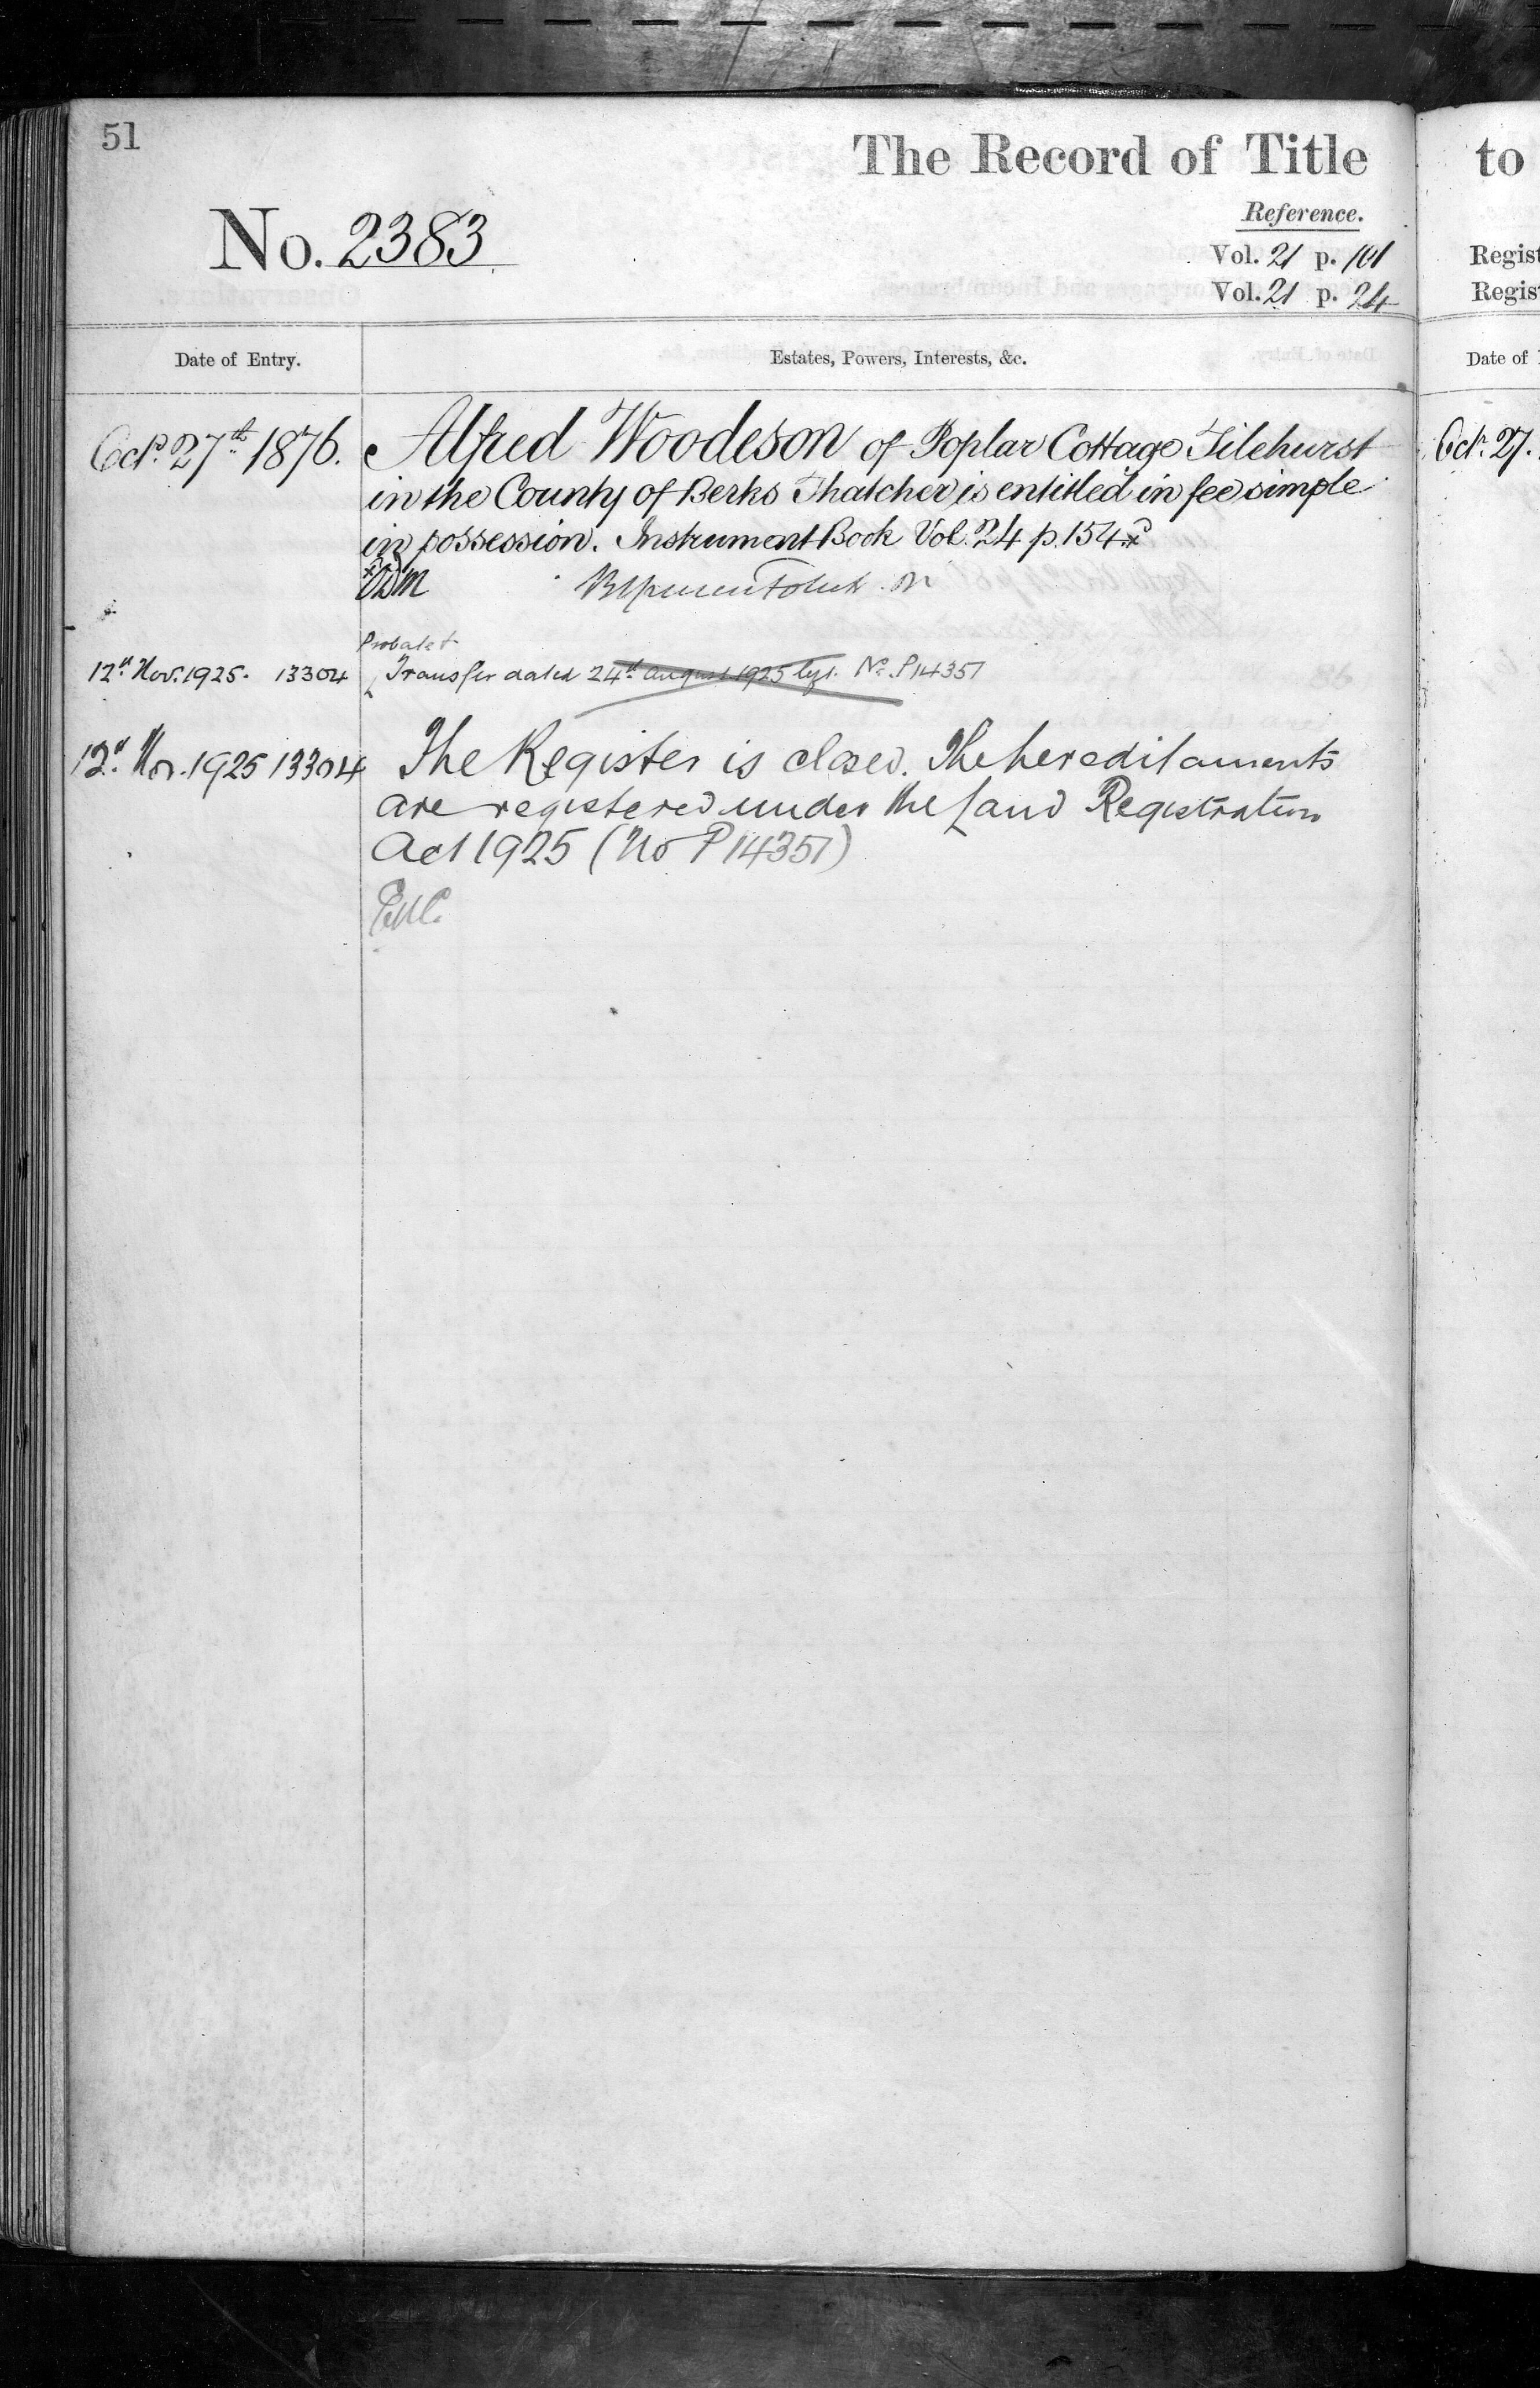 51
The Record of Title
to
Reference.
No. 2383.
Vol. 21 p. 101
Regist
Vol. 21 p. 24
Regist
Date of Entry.
Estates, Powers, Interests, &c.
Date of
Oct. 27th 1876.
Alfred Woodeson of Poplar Cottage Tilehurst
Oct. 27.
in the County of Berks Thatcher is entitled in fee simple
in possession. Instrument Book Vol. 24 p. 154
Probate &
12th Nov. 1925. 13304
Transfer dated 24th August 1925 No. P14351
12th Nov. 1925 13304
The Register is closed. The hereditaments
are registered under the Land Registration
Act 1925 (No P14351)